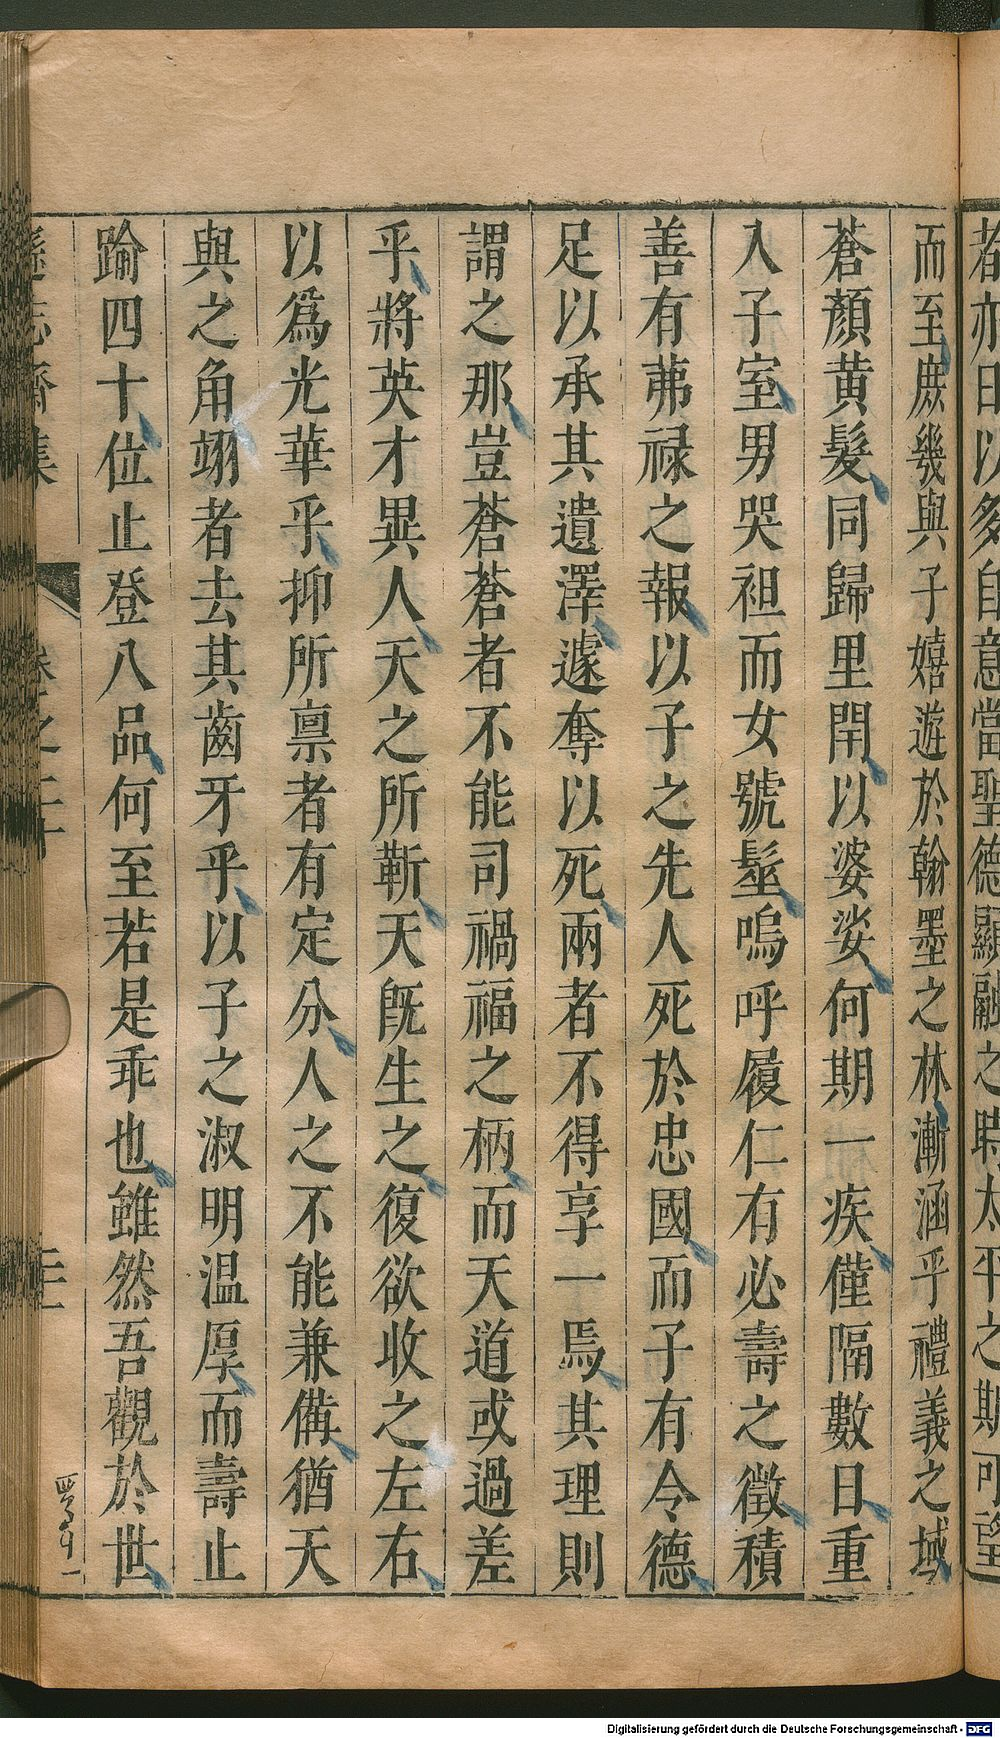 都亦曰以多自意當聖德顯融之時太平之期可望
而至庶幾與子嬉遊於翰墨之林漸涵乎禮義之域
蒼顏黄髮同歸里閈以婆娑何期一疾僅隔數日重
入子室男哭袒而女號髽嗚呼履仁有必壽之徵積
善有茀禄之報以子之先人死於忠國而子有令德
足以承其遺澤遽奪以死兩者不得享一焉其理則
謂之那豈蒼蒼者不能司禍福之柄而天道或過差
乎將英才異人天之所靳天既生之復欲收之左右
以爲光華乎抑所禀者有定分人之不能兼備猶天
與之角翊者去其齒牙乎以子之淑明温厚而壽止
踰四十位止登八品何至若是乖也雖然吾觀於世
遜志齋集
卷之二十
Digitalisierung gefördert durch die Deutsche Forschungsgemeinschaft - DFG